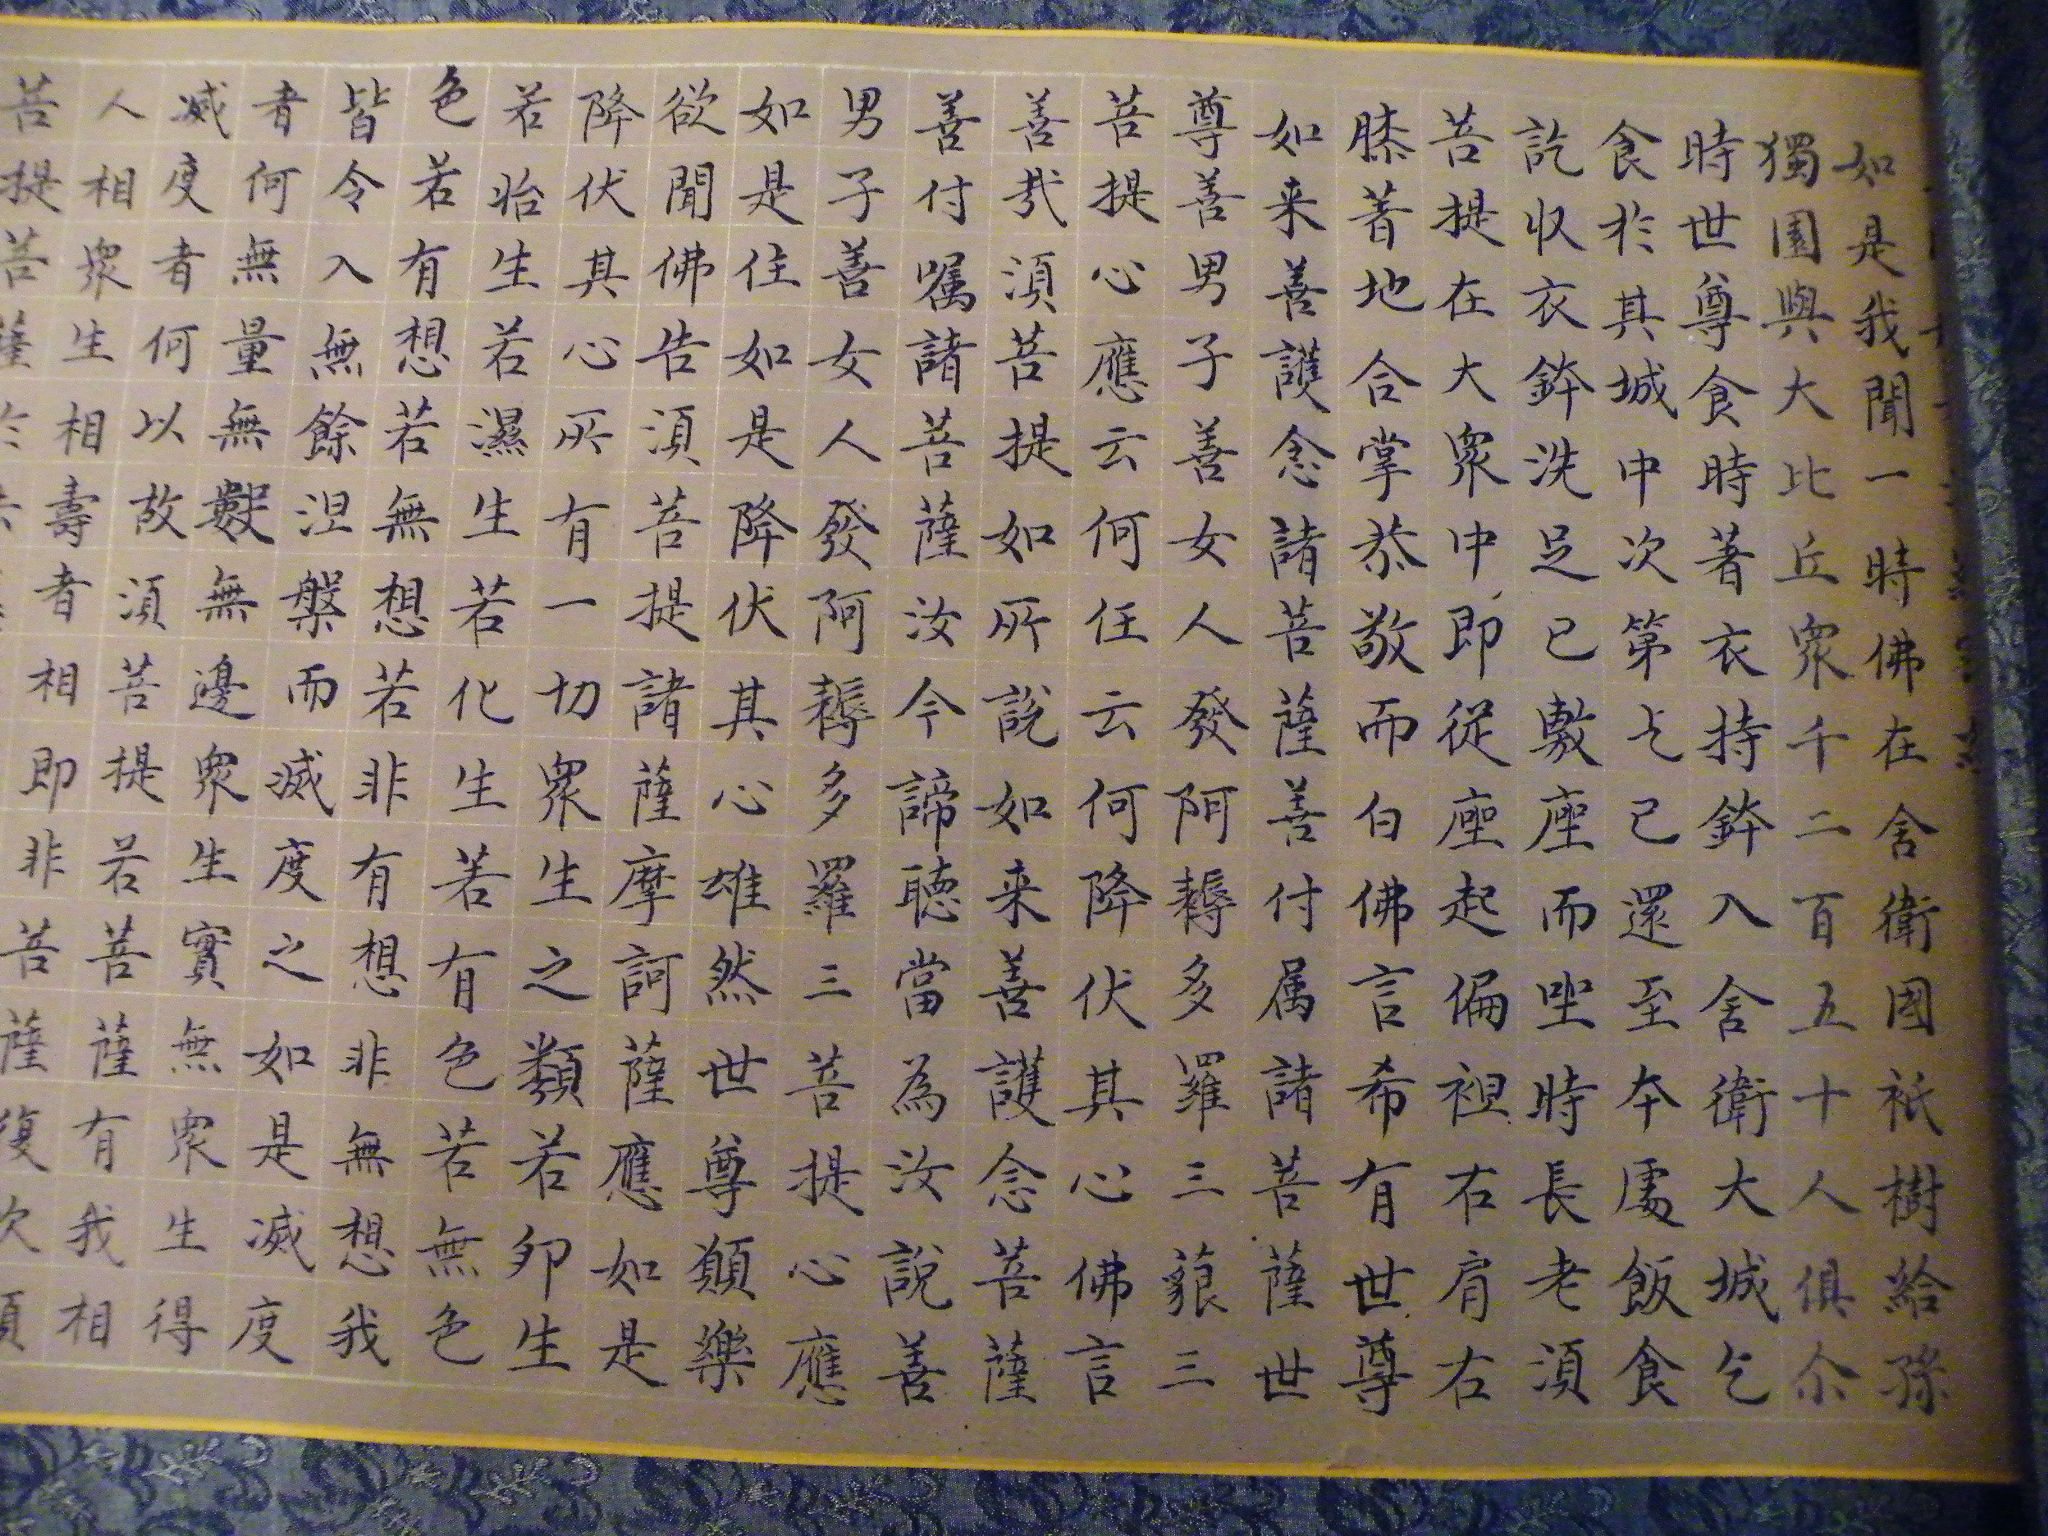 如是我聞一時佛在舍衛國祇樹給孫
獨園與大比丘衆千二百五十人俱尒
時世尊食時著衣持鉢入舍衛大城乞
食於其城中次第乞已還至本處飯食
訖收衣鉢洗足已敷座而坐時長老湏
菩提在大衆中即從座起偏袒右肩右
膝著地合掌恭敬而白佛言希有世尊
如来善護念諸菩薩善付属諸菩薩世
尊善男子善女人發阿耨多羅三藐三
菩提心應云何住云何降伏其心佛言
善㢤湏菩提如所說如来善護念菩薩
善付嘱諸菩薩汝今諦聴當為汝說善
男子善女人發阿耨多羅三菩提心應
如是住如是降伏其心雄然世尊顓樂
欲聞佛告湏菩提諸薩摩訶薩應如是
降伏其心所有一切衆生之類若卵生
若胎生若濕生若化生若有色若無色
色若有想若無想若非有想非無想我
皆令入無餘涅槃而滅度之如是滅度
者何無量無數無邊衆生實無衆生得
滅度者何以故湏菩提若菩薩有我相
人相衆生相壽者相即非菩薩復次湏
菩提菩薩於法